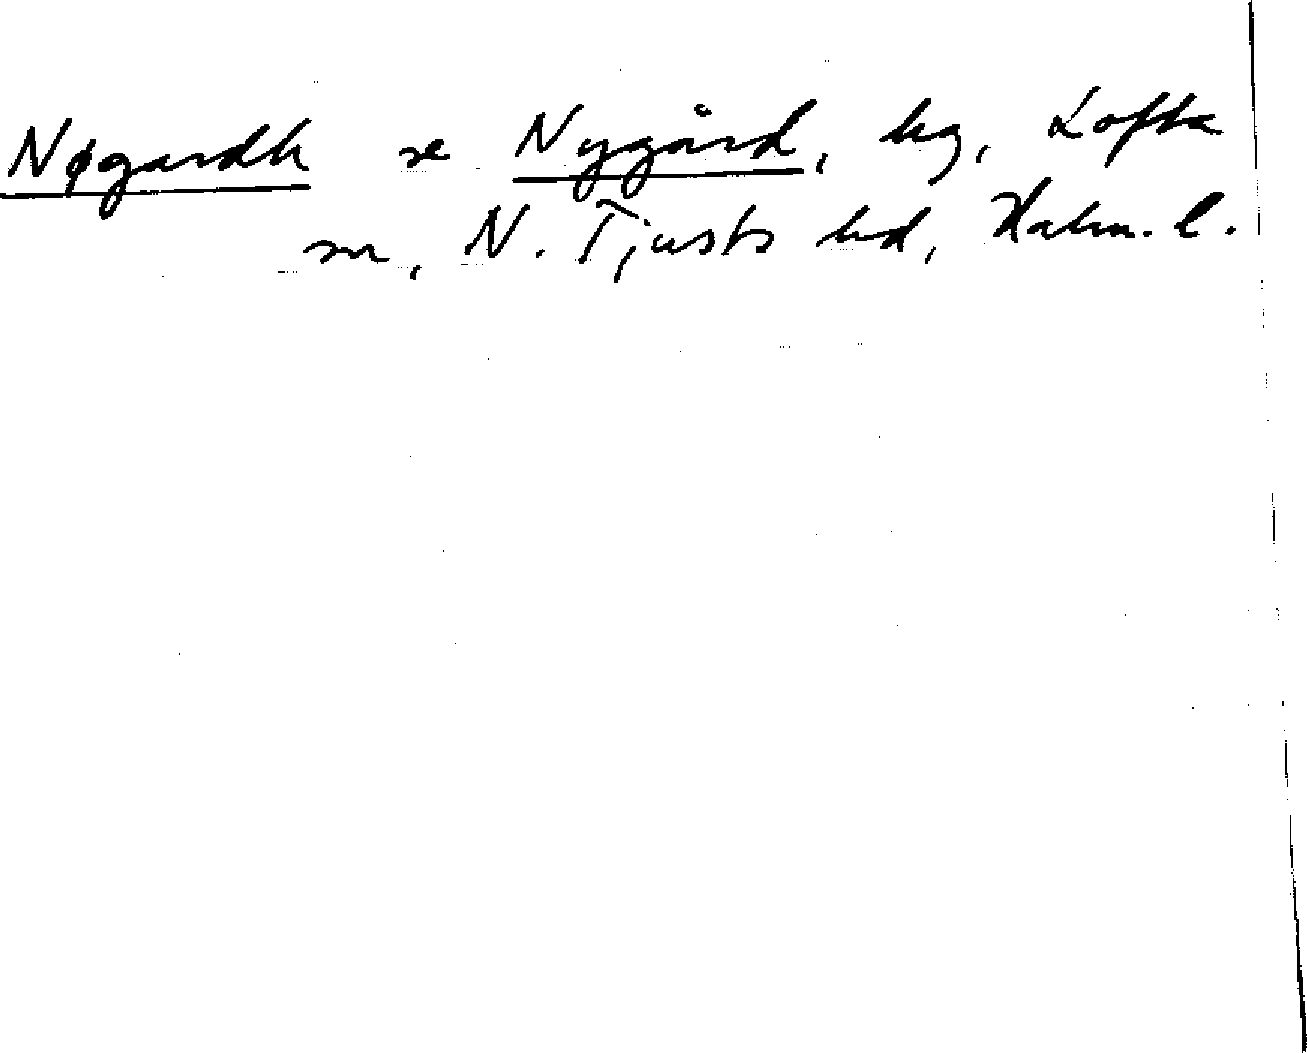 Nøgardh se Nygård, hg, Lofta
sn, N. Tjusts hd, Kalm. l.